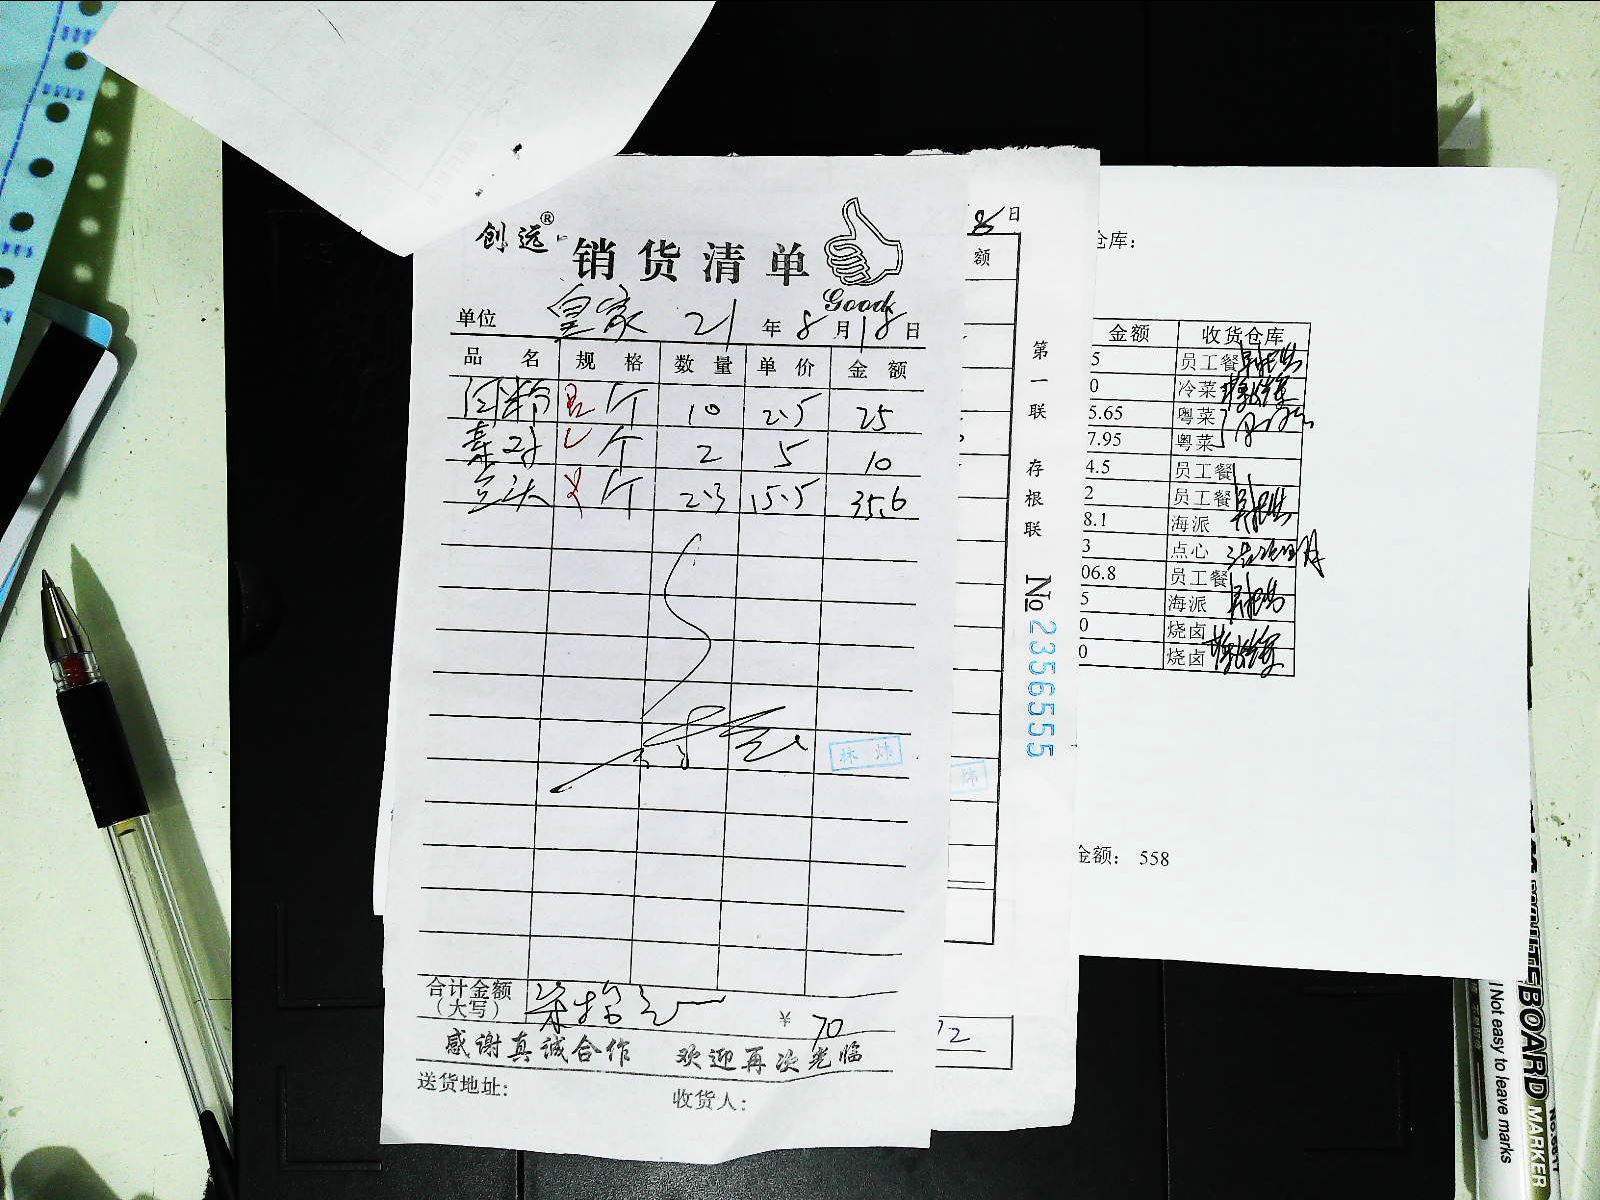 创远®
销货清单
Good
单位 皇家 21 年 8 月 18 日
品名 规格 数量 单价 金额
个 10 2.5 25
个 2 5 10
个 2.3 15.5 35.6
林炜
合计金额
（大写）
柒拾元 ¥ 70
感谢真诚合作 欢迎再次光临
送货地址：
收货人：
8 日
额
第一联 存根联
№ 2356555
炜
72
仓库：
金额 收货仓库
5 员工餐
0 冷菜
5.65 粤菜
7.95 粤菜
4.5 员工餐
2 员工餐
8.1 海派
3 点心
06.8 员工餐
5 海派
0 烧卤
0 烧卤
金额： 558
WHITEBOARD MARKER
Not easy to leave marks